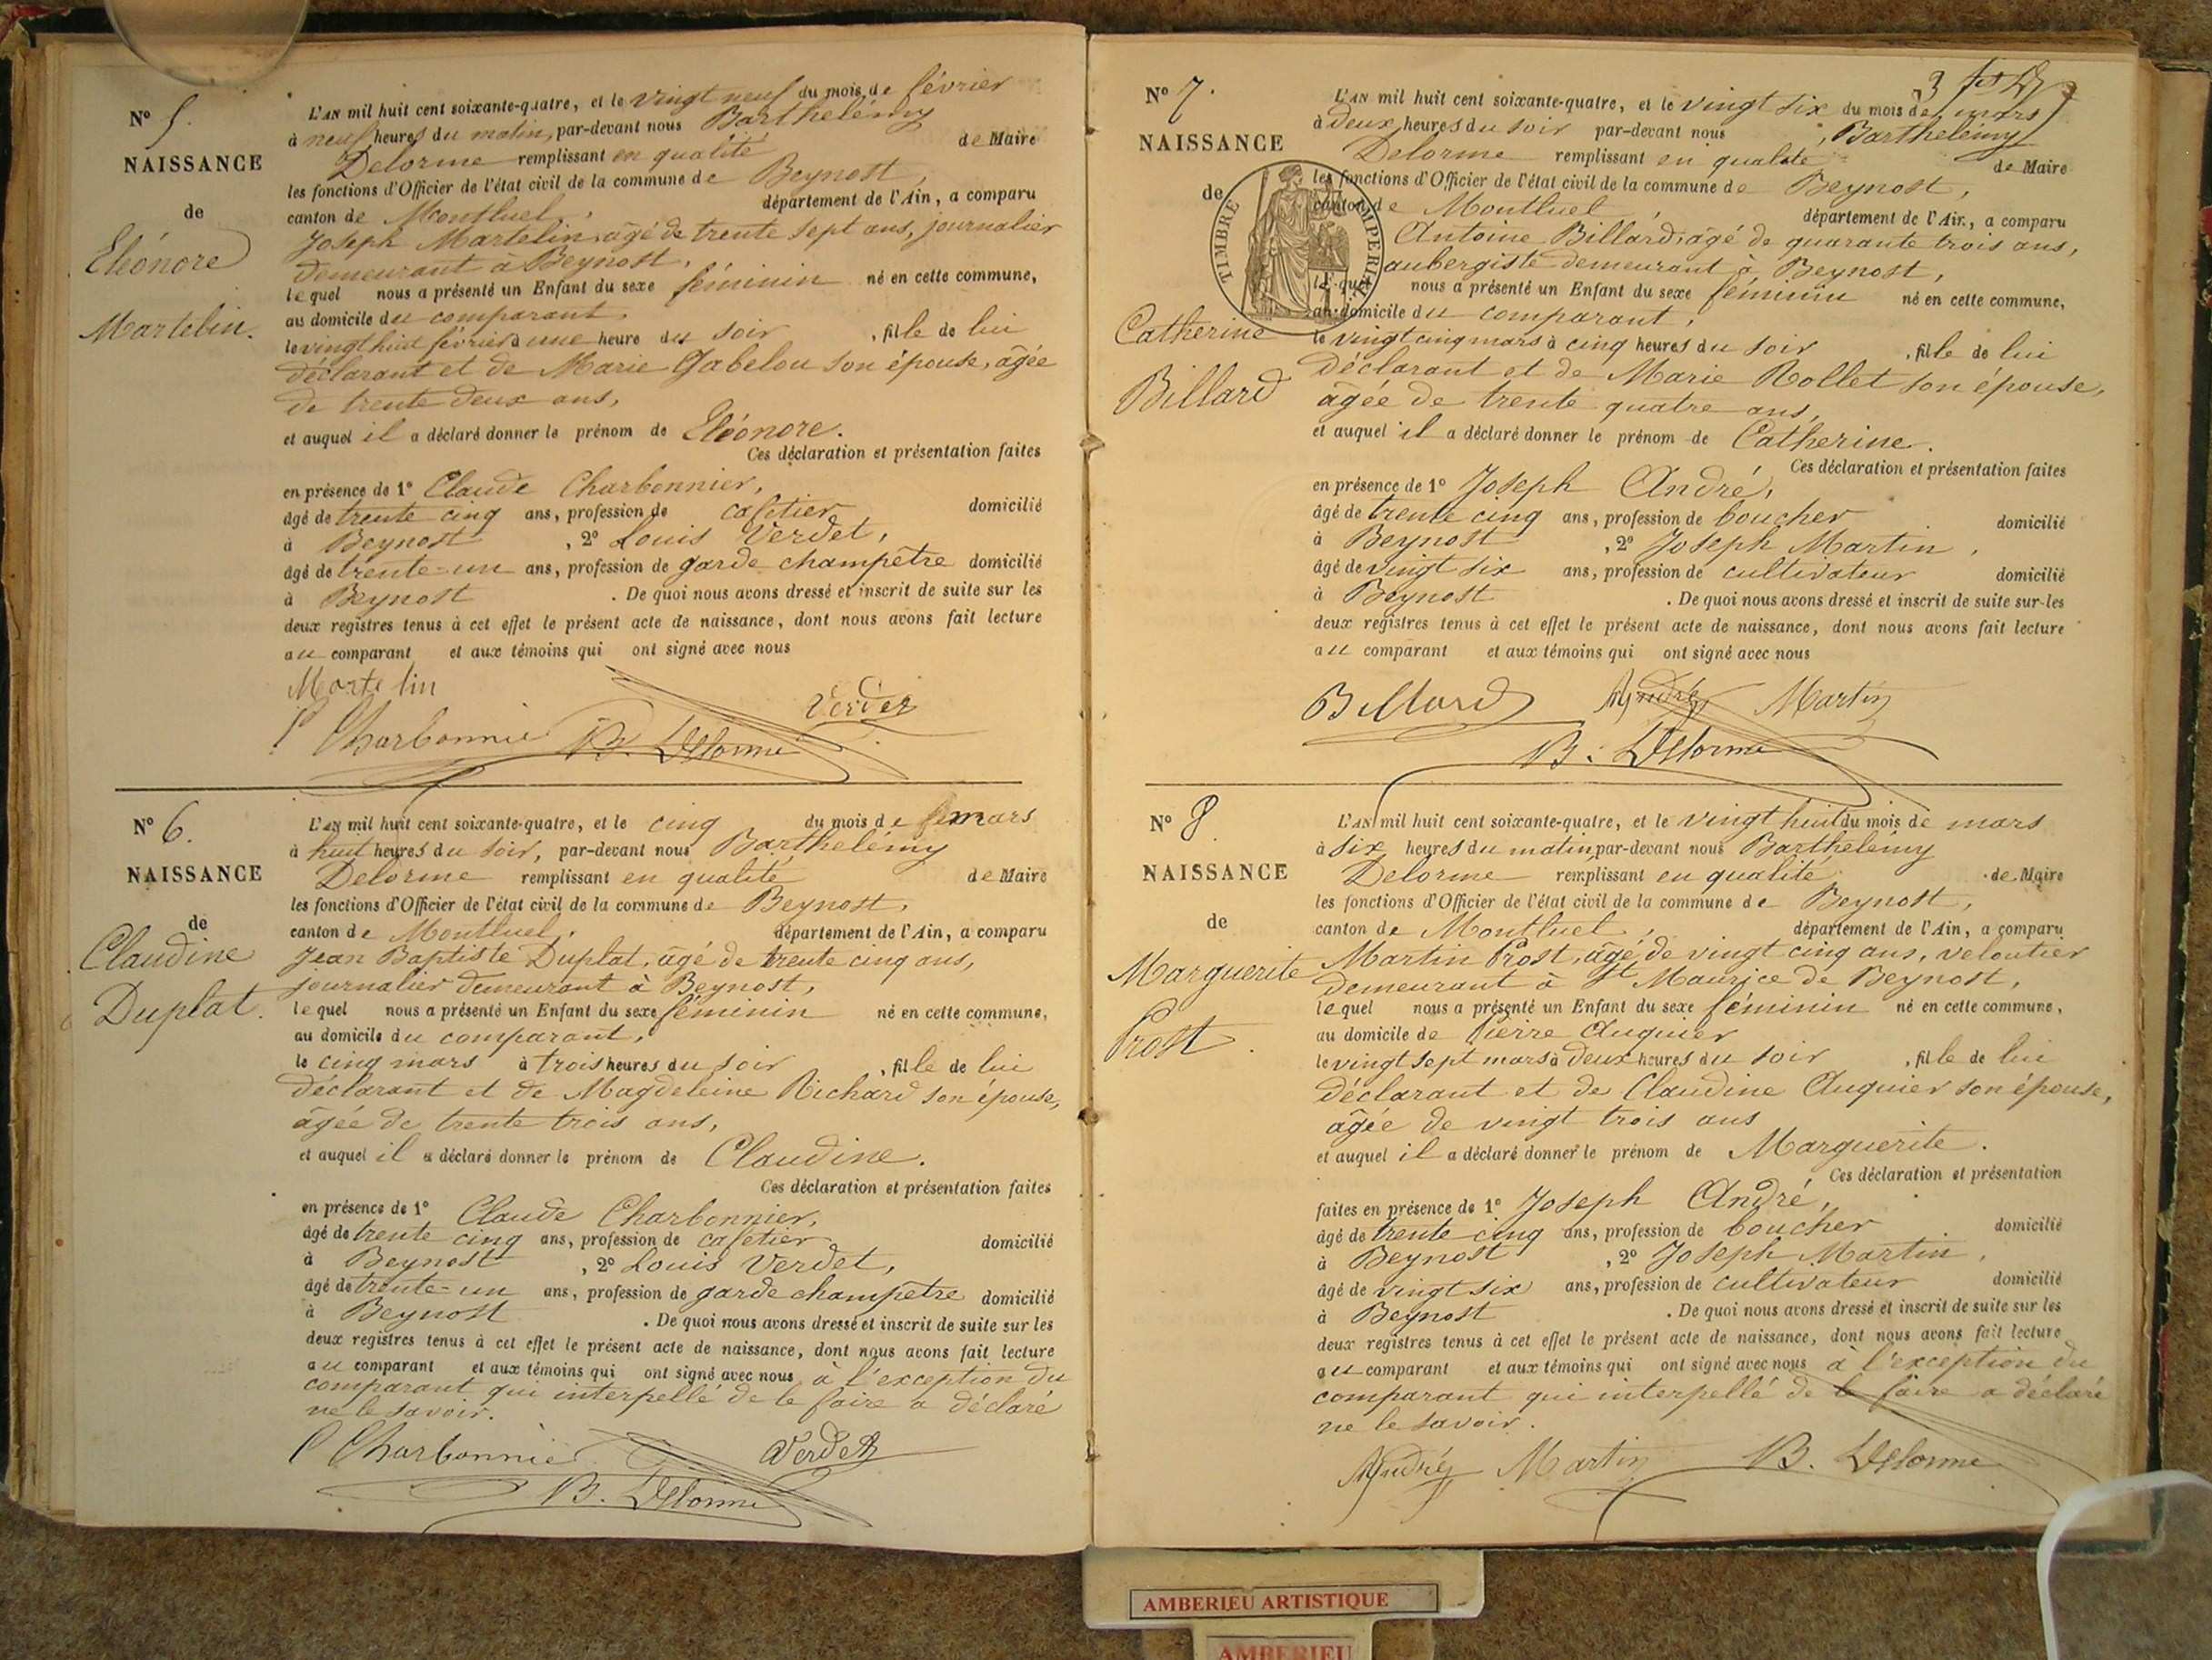 N° 5.
NAISSANCE
de
Eléonore
Martelin.
L'AN mil huit cent soixante-quatre, et le vingt neuf du mois de février
à neuf heures du matin, par-devant nous Barthelémy
Delorme remplissant en qualité de Maire
les fonctions d'Officier de l'état civil de la commune de Beynost,
canton de Montluel, département de l'Ain, a comparu
Joseph Martelin, âgé de trente sept ans, journalier
demeurant à Beynost,
lequel nous a présenté un Enfant du sexe féminin né en cette commune,
au domicile du comparant,
le vingt huit février à une heure du soir, fille de lui
déclarant et de Marie Gabelou son épouse, âgée
de trente deux ans,
et auquel il a déclaré donner le prénom de Eléonore.
Ces déclaration et présentation faites
en présence de 1° Claude Charbonnier,
âgé de trente cinq ans, profession de cafetier domicilié
à Beynost, 2° Louis Verdet,
âgé de trente-un ans, profession de garde champêtre domicilié
à Beynost. De quoi nous avons dressé et inscrit de suite sur les
deux registres tenus à cet effet le présent acte de naissance, dont nous avons fait lecture
au comparant et aux témoins qui ont signé avec nous
Martelin
Verdet
Charbonnie B. Delorme
N° 6.
NAISSANCE
de
Claudine
Duplat.
L'AN mil huit cent soixante-quatre, et le cinq du mois de mars
à huit heures du soir, par-devant nous Barthelémy
Delorme remplissant en qualité de Maire
les fonctions d'Officier de l'état civil de la commune de Beynost,
canton de Montluel, département de l'Ain, a comparu
Jean Baptiste Duplat, âgé de trente cinq ans,
journalier demeurant à Beynost,
lequel nous a présenté un Enfant du sexe féminin né en cette commune,
au domicile du comparant,
le cinq mars à trois heures du soir, fille de lui
déclarant et de Magdeleine Richard son épouse,
âgée de trente trois ans,
et auquel il a déclaré donner le prénom de Claudine.
Ces déclaration et présentation faites
en présence de 1° Claude Charbonnier,
âgé de trente cinq ans, profession de cafetier domicilié
à Beynost, 2° Louis Verdet,
âgé de trente-un ans, profession de garde champêtre domicilié
à Beynost. De quoi nous avons dressé et inscrit de suite sur les
deux registres tenus à cet effet le présent acte de naissance, dont nous avons fait lecture
au comparant et aux témoins qui ont signé avec nous à l'exception du
comparant qui interpellé de le faire a déclaré
ne le savoir.
Charbonnie Verdet
B. Delorme
3
N° 7.
NAISSANCE
de
Catherine
Billard
TIMBRE IMPERIAL
L'AN mil huit cent soixante-quatre, et le vingt six du mois de mars
à deux heures du soir par-devant nous, Barthelémy
Delorme remplissant en qualité de Maire
les fonctions d'Officier de l'état civil de la commune de Beynost,
canton de Montluel, département de l'Ain, a comparu
Antoine Billard, âgé de quarante trois ans,
aubergiste demeurant à Beynost,
lequel nous a présenté un Enfant du sexe féminin né en cette commune,
au domicile du comparant,
le vingt cinq mars à cinq heures du soir, fille de lui
déclarant et de Marie Rollet son épouse,
âgée de trente quatre ans,
et auquel il a déclaré donner le prénom de Catherine.
Ces déclaration et présentation faites
en présence de 1° Joseph André,
âgé de trente cinq ans, profession de boucher domicilié
à Beynost, 2° Joseph Martin,
âgé de vingt six ans, profession de cultivateur domicilié
à Beynost. De quoi nous avons dressé et inscrit de suite sur les
deux registres tenus à cet effet le présent acte de naissance, dont nous avons fait lecture
au comparant et aux témoins qui ont signé avec nous
Billard André Martin
B. Delorme
N° 8
NAISSANCE
de
Marguerite
Prost.
L'AN mil huit cent soixante-quatre, et le vingt huit du mois de mars
à six heures du matin par-devant nous Barthelémy
Delorme remplissant en qualité de Maire
les fonctions d'Officier de l'état civil de la commune de Beynost,
canton de Montluel, département de l'Ain, a comparu
Martin Prost, âgé de vingt cinq ans, veloutier
demeurant à St Maurice de Beynost,
lequel nous a présenté un Enfant du sexe féminin né en cette commune,
au domicile de Pierre Auguier
le vingt sept mars à deux heures du soir, fille de lui
déclarant et de Claudine Auguier son épouse,
âgée de vingt trois ans
et auquel il a déclaré donner le prénom de Marguerite.
Ces déclaration et présentation
faites en présence de 1° Joseph André,
âgé de trente cinq ans, profession de boucher domicilié
à Beynost, 2° Joseph Martin,
âgé de vingt six ans, profession de cultivateur domicilié
à Beynost. De quoi nous avons dressé et inscrit de suite sur les
deux registres tenus à cet effet le présent acte de naissance, dont nous avons fait lecture
au comparant et aux témoins qui ont signé avec nous à l'exception du
comparant qui interpellé de le faire a déclaré
ne le savoir.
André Martin B. Delorme
AMBERIEU ARTISTIQUE
AMBERIEU